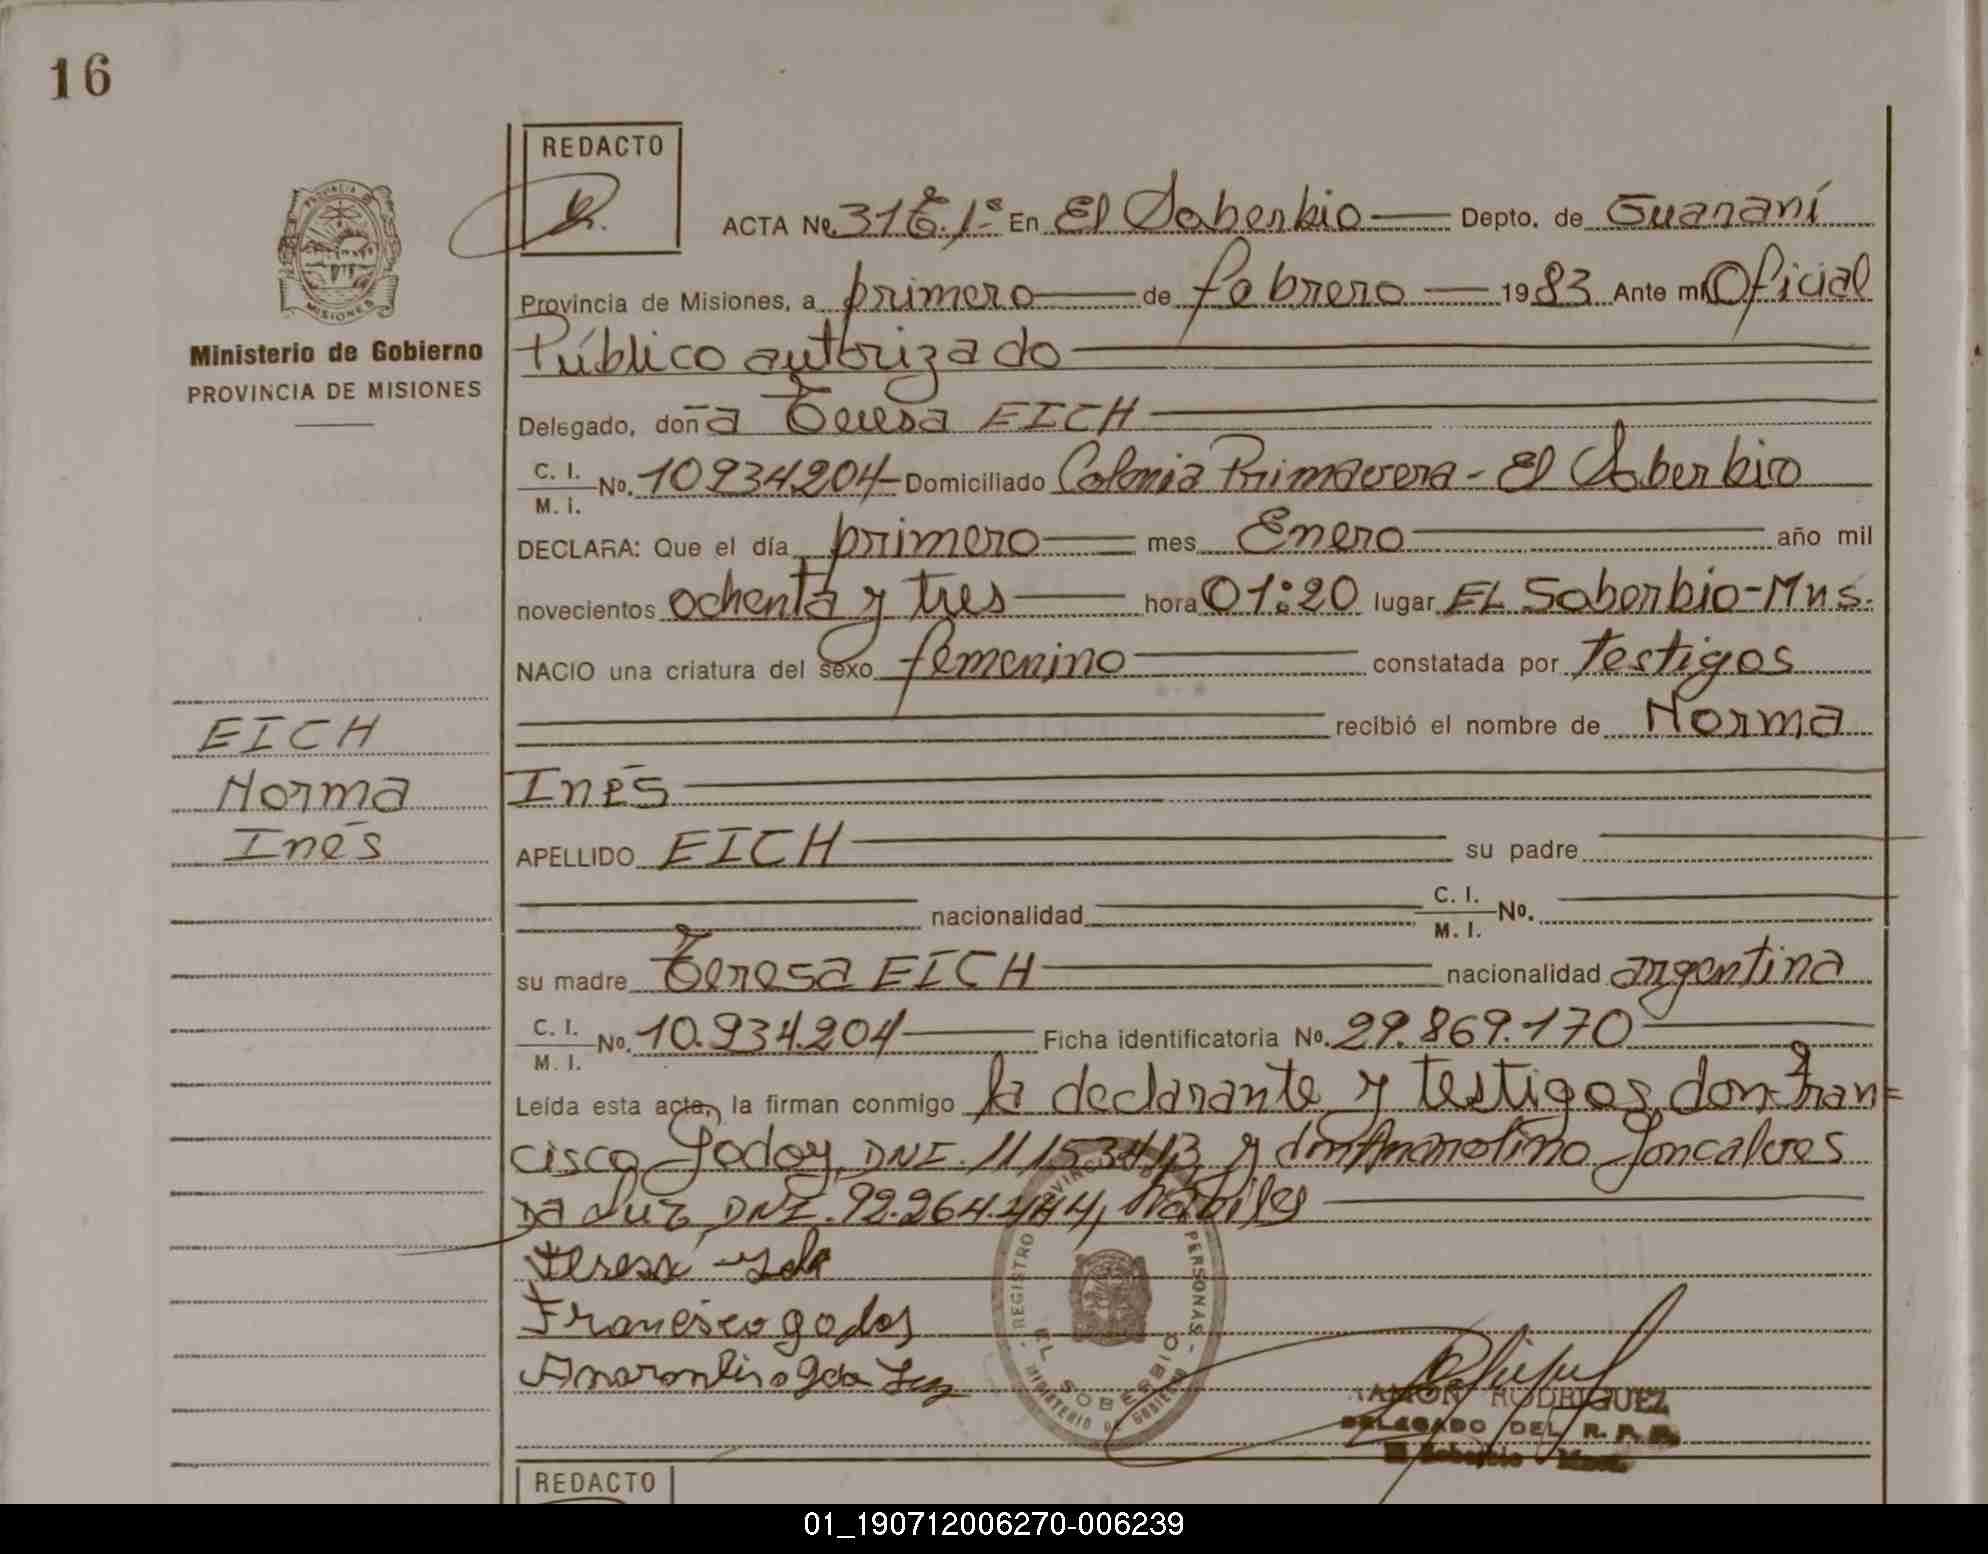 16
REDACTO
ACTA No. 31 T. 1º En El Soberbio Depto. de Guaraní
Provincia de Misiones, a primero de febrero 1983 Ante mí Oficial
Público autorizado
Ministerio de Gobierno
PROVINCIA DE MISIONES
Delegado, doña Teresa EICH
C. I. M. I. No. 10934204 Domiciliado Colonia Primavera - El Soberbio
DECLARA: Que el día primero mes Enero año mil
novecientos ochenta y tres hora 01:20 lugar EL Soberbio-Mns.
NACIO una criatura del sexo femenino constatada por testigos
recibió el nombre de Norma
Inés
EICH
Norma
Inés
APELLIDO EICH su padre
nacionalidad C. I. M. I. No.
su madre Teresa EICH nacionalidad argentina
C. I. M. I. No. 10.934.204 Ficha identificatoria No. 29.869.170
Leída esta acta, la firman conmigo la declarante y testigos, don Fran=
cisco Godoy, DNI. 11153413 y don Anarolino Goncalves
Da Luz, DNI. 92.264.444, hábiles
Teresa
Francisco godoy
da Luz
REGISTRO PROVINCIAL PERSONAS
EL SOBERBIO
MINISTERIO DE GOBIERNO
RAMON RODRIGUEZ
DELEGADO DEL R. P. P.
El Soberbio Mnes.
REDACTO
01_190712006270-006239